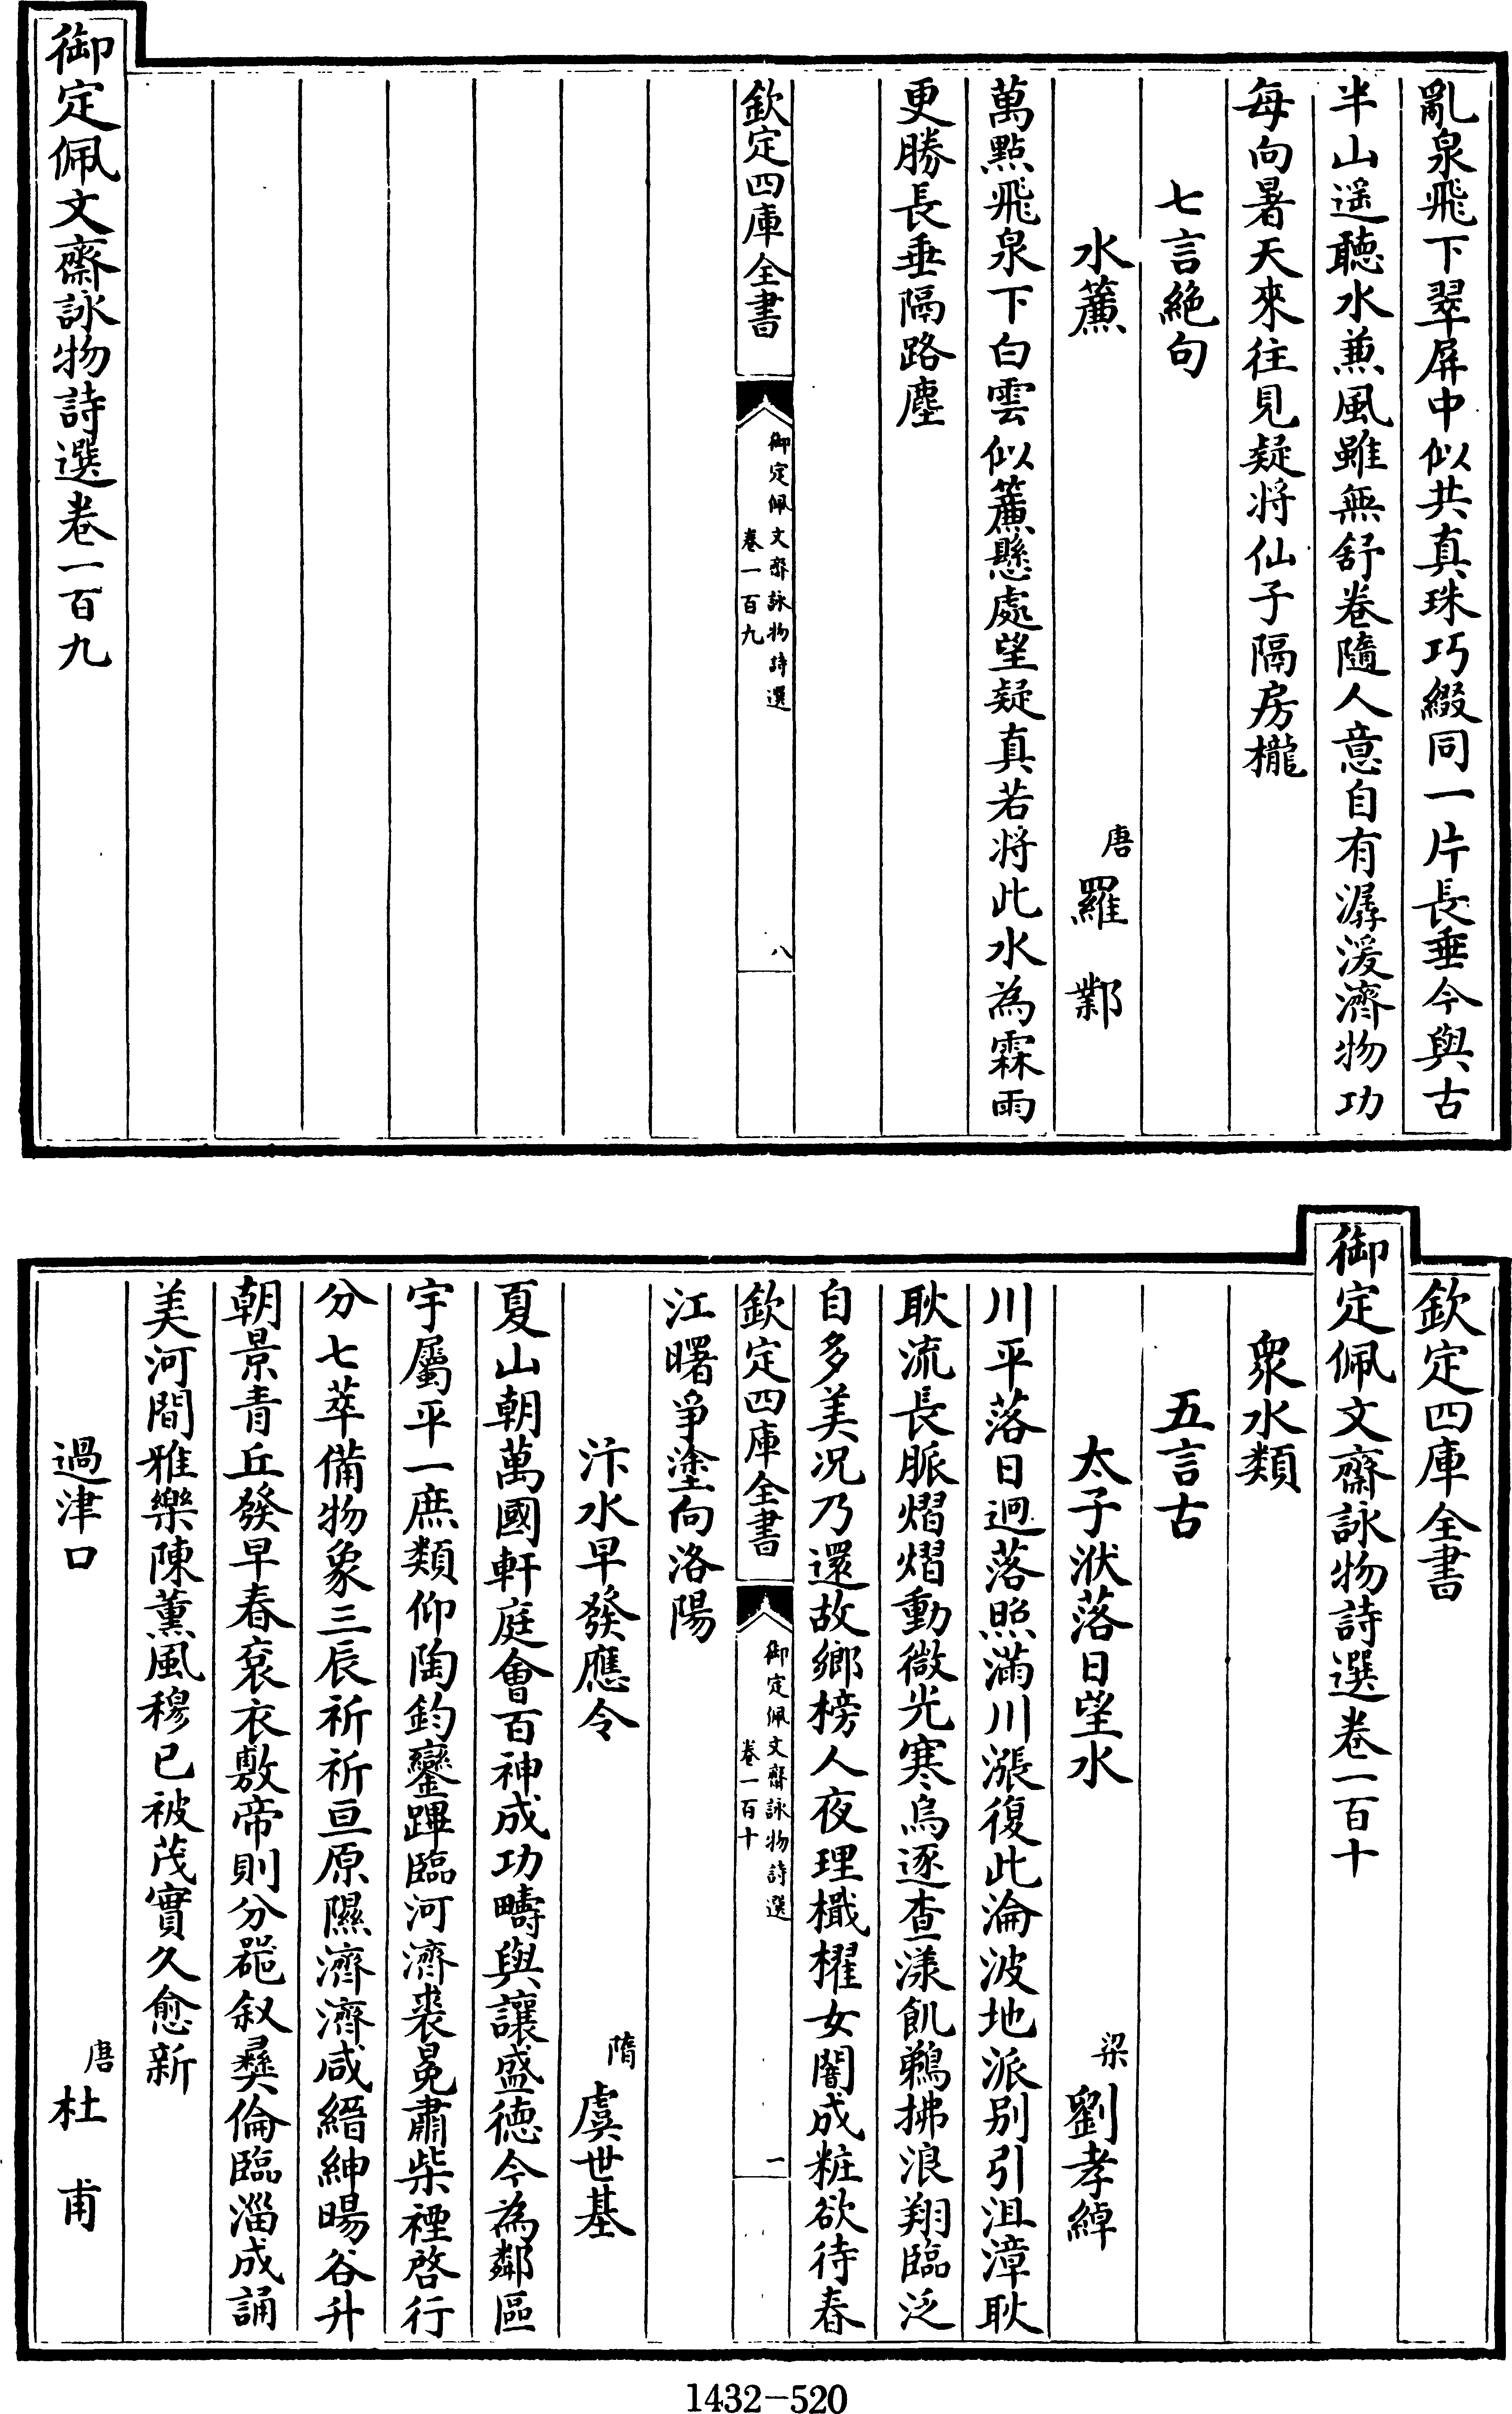 亂泉飛下翠屏中似共真珠巧綴同一片長垂今與古
半山遥聽水兼風雖無舒卷隨人意自有潺湲濟物功
每向暑天來往見疑將仙子隔房櫳
七言絶句
水簾 唐 羅鄴
萬點飛泉下白雲似簾懸處望疑真若將此水為霖雨
更勝長垂隔路塵
欽定四庫全書 御定佩文齋詠物詩選 卷一百九 八
御定佩文齋詠物詩選卷一百九
欽定四庫全書
御定佩文齋詠物詩選卷一百十
衆水類
五言古
太子洑落日望水 梁 劉孝綽
川平落日迥落照滿川漲復此淪波地派别引沮漳耿
耿流長脈熠熠動微光寒烏逐查漾飢鵜拂浪翔臨泛
自多美况乃還故鄉榜人夜理檝櫂女闇成粧欲待春
欽定四庫全書 御定佩文齋詠物詩選 卷一百十 一
江曙爭塗向洛陽
汴水早發應令 隋 虞世基
夏山朝萬國軒庭會百神成功疇與讓盛德今為鄰區
宇屬平一庶類仰陶鈞鑾蹕臨河濟裘冕肅柴禋啓行
分七萃備物象三辰祈祈亘原隰濟濟咸縉紳暘谷升
朝景青丘發早春衮衣敷帝則分噐叙彞倫臨淄成誦
美河間雅樂陳薰風穆已被茂實久愈新
過津口 唐 杜甫
1432-520